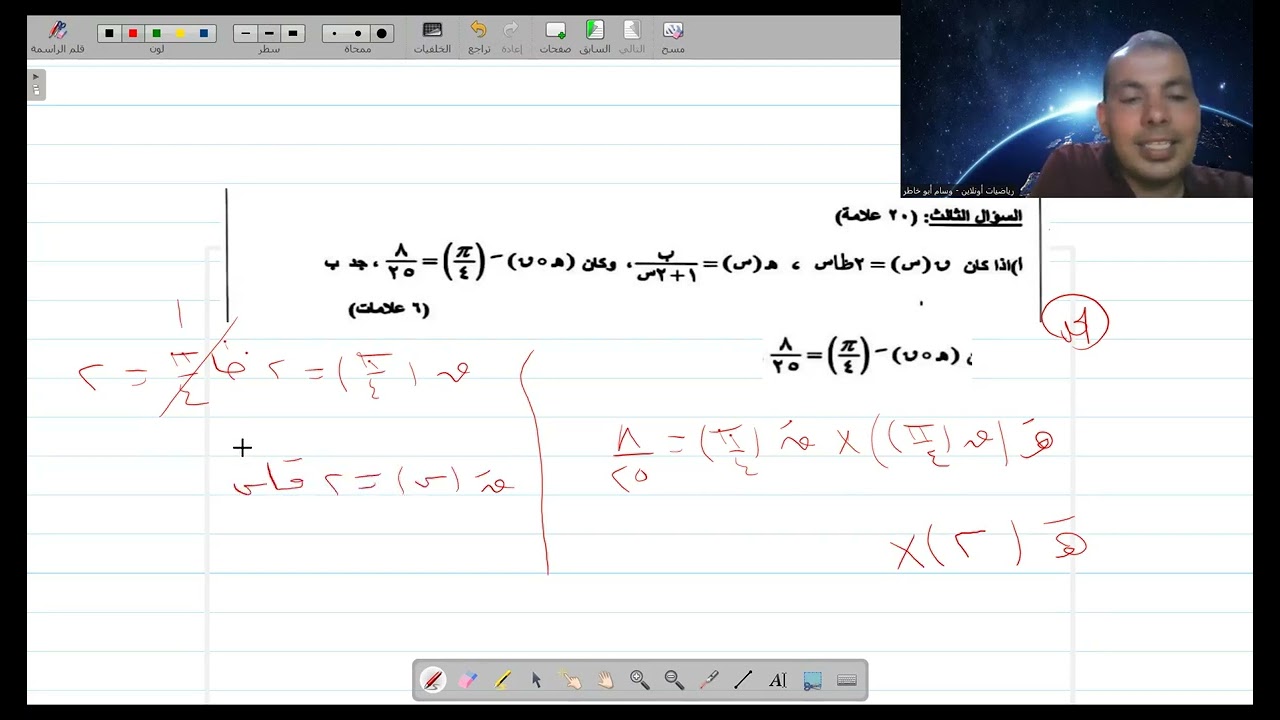 قلم الراسمة لون سطر ممحاة الخلفيات تراجع إعادة صفحات السابق التالي مسح
رياضيات أونلاين - وسام أبو خاطر
السؤال الثالث: (٢٠ علامة)
أ) اذا كان ن(س) = ٢ظاس ، هـ(س) = ب/(١+٢س) ، وكان (هـ∘ن)‾(π/٤) = ٨/٢٥ ، جد ب
(٦ علامات)
(هـ∘ن)‾(π/٤) = ٨/٢٥
هـَ(ن(π/٤)) × نَ(π/٤) = ٨/٢٥
هـَ(٢) ×
١
ن(π/٤) = ٢ ظا π/٤ = ٢
نَ(س) = ٢ قاَس